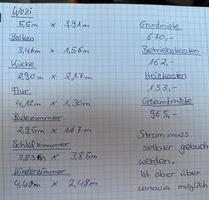 Wozi
5,5m x 3,91m
Balkon
3,46m x 1,56m
Küche
2,90m x 2,17m
Flur
4,12m x 1,30m
Badezimmer
2,95m x
Schlafzimmer
x 3,85m
Kinderzimmer
4,40m x 2,48m
Grundmiete
670,-
Betriebskosten
162,-
Heizkosten
133,-
Gesamtmiete
965,-
Strom muss
selber gebucht
werden.
Ist aber über
vonovia möglich